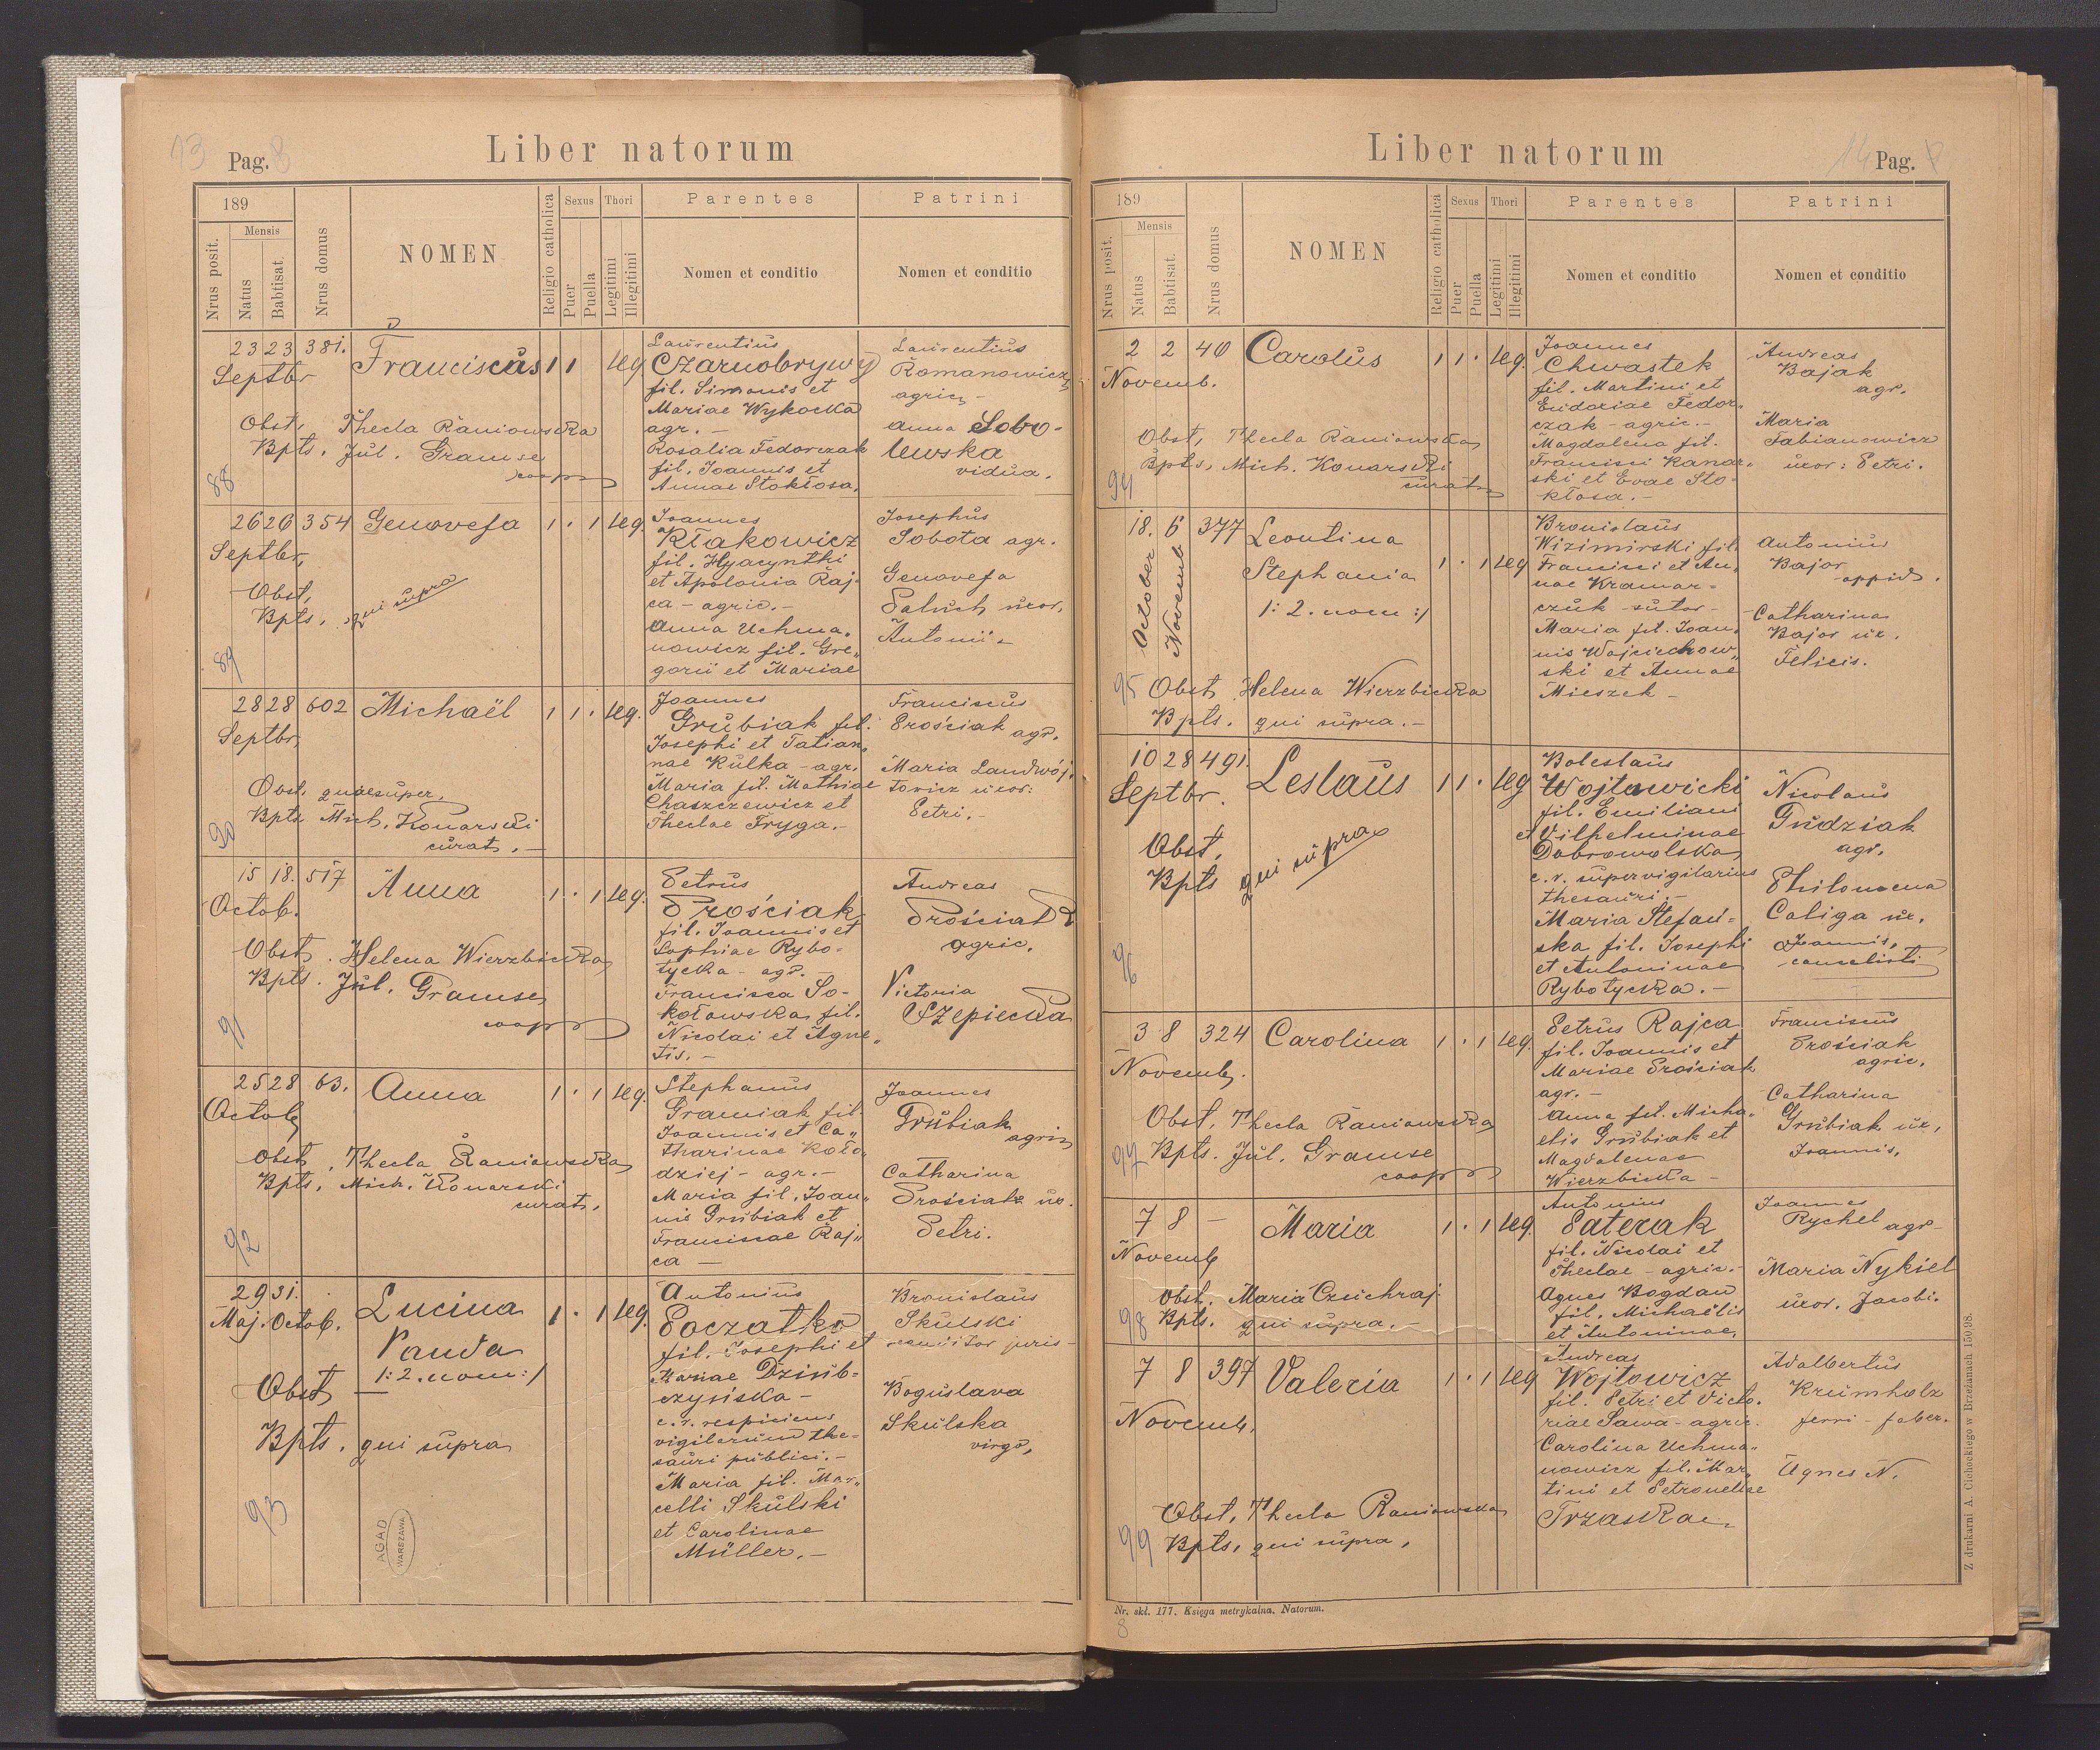 13
Pag. 8
Liber natorum
189
Nrus posit.
Mensis
Natus
Babtisat.
Nrus domus
NOMEN
Religio catholica
Sexus
Puer
Puella
Thori
Legitimi
Illegitimi
Parentes
Nomen et conditio
Patrini
Nomen et conditio
23 23 381. Franciscus 1 1 leg
Septbr
Obst. Thecla Raniowska
Bpts. Jul. Gramse
coop
88
Laurentius
Czarnobrywy
fil. Simonis et
Mariae Wykocka
agr. -
Rosalia Fedorczak
fil. Joannis et
Annae Stokłosa.
Laurentius
Romanowicz
agric -
Anna Sobo-
lewska
vidua.
26 26 354 Genovefa 1 · 1 leg.
Septbr,
Obst,
Bpts. qui supra
89
Joannes
Kłakowicz
fil. Hyacynthi
et Apolonia Raj-
ca - agric. -
Anna Uchma-
nowicz fil. Gre„
gorii et Mariae
Josephus
Sobota agr.
Genovefa
Paluch uxor,
Antonii -
28 28 602 Michaël 1 1 · leg.
Septbr,
Obst. quae super,
Bpts Mich. Konarski
curat. -
90
Joannes
Grubiak fil.
Josephi et Tatian„
nae Kulka - agr.
Maria fil. Mathiae
Chaszczewicz et
Theclae Fryga. -
Franciscus
Prościak agr.
Maria Landwój„
towicz uxor:
Petri. -
15 18. 517 Anna 1 · 1 leg.
Octob.
Obst. Helena Wierzbicka
Bpts. Jul. Gramse
coop
91
Petrus
Prościak
fil. Joannis et
Sophiae Rybo-
tycka - agr. -
Francisca So-
kołowska fil.
Nicolai et Agne„
tis. -
Andreas
Prościak
agric.
Victoria
Szpiecka
25 28 63. Anna 1 · 1 leg.
Octob
Obst. Thecla Raniowska
Bpts. Mich. Konarski
curat.
92
Stephanus
Graniak fil.
Joannis et Ca„
tharinae Koło„
dziej - agr. -
Maria fil. Joan„
nis Grubiak et
Franciscae Raj„
ca -
Joannes
Grubiak
agric
Catharina
Prościak ux.
Petri.
29 31.
Maj. Octob. Lucina 1 · 1 leg.
Vanda
/: 2. nom :/
Obst —
Bpts. qui supra
93
Antonius
Początko
fil. Josephi et
Mariae Dziub-
czyńska -
c. r. respiciens
vigilarum the-
sauri publici. -
Maria fil. Mar„
celli Skulski
et Carolinae
Müller. -
Bronislaus
Skulski
auditor juris -
Boguslava
Skulska
virgo,
AGAD
WARSZAWA
Liber natorum
14 Pag.
189
Nrus posit.
Mensis
Natus
Babtisat.
Nrus domus
NOMEN
Religio catholica
Sexus
Puer
Puella
Thori
Legitimi
Illegitimi
Parentes
Nomen et conditio
Patrini
Nomen et conditio
2 2 40 Carolus 1 1 · leg.
Novemb.
Obst, Thecla Raniowska
Bpts, Mich. Konarski
curat
94
Joannes
Chwastek
fil. Martini et
Eudoxiae Fedor„
czak - agric. -
Magdalena fil.
Francisci Kanar„
ski et Evae Sto-
kłosa. -
Andreas
Bajak
agr.
Maria
Fabianowicz
uxor: Petri.
18. 6 377 Leontina
October Novemb
Stephania 1 · 1 leg
/: 2. nom :/
95 Obst Helena Wierzbicka
Bpts. qui supra. -
Bronislaus
Wizimirski fil.
Francisci et An„
nae Kramar-
czuk - sutor -
Maria fil. Joan„
nis Wojciechow„
ski et Annae
Mieszek -
Antonius
Bajor
oppid.
Catharina
Bajor ux.
Felicis.
10 28 491. Leslaus 1 1 · leg
Septbr.
Obst.
Bpts qui supra
96
Boleslaus
Wojtowicki
fil. Emiliani
et Vilhelminae
Dobrowolska
c. r. supervigilarius
thesauri. -
Maria Stefań-
ska fil. Josephi
et Antoninae
Rybotycka. -
Nicolaus
Gudziak
agr.
Philomena
Caliga ux.
Joannis,
cancelisti
3 8 324 Carolina 1 · 1 leg.
Novemb.
Obst, Thecla Raniowska
97 Bpts. Jul. Gramse
coop
Petrus Rajca
fil. Joannis et
Mariae Prościak
agr. -
Anna fil. Micha„
elis Grubiak et
Magdalenae
Wierzbicka -
Franciscus
Prościak
agric.
Catharina
Grubiak ux,
Joannis.
7 8 — Maria 1 · 1 leg.
Novemb
Obst, Maria Czuchraj
98 Bpts. qui supra. -
Antonius
Paterak
fil. Nicolai et
Theclae - agric. -
Agnes Bogdan
fil. Michaëlis
et Antoninae,
Joannes
Rychel agr -
Maria Nykiel
uxor. Jacobi.
7 8 397 Valeria 1 · 1 leg
Novemb.
Obst, Thecla Raniowska
99 Bpts, qui supra,
Andreas
Wojtowicz
fil. Petri et Victo„
riae Sawa - agric.
Carolina Uchma„
nowicz fil. Mar„
tini et Petronellae
Trzaska.
Adalbertus
Krumholz
ferri - faber.
Agnes N.
Nr. skł. 177. Księga metrykalna. Natorum.
8
Z drukarni A. Cichockiego w Brzeżanach 150/98.